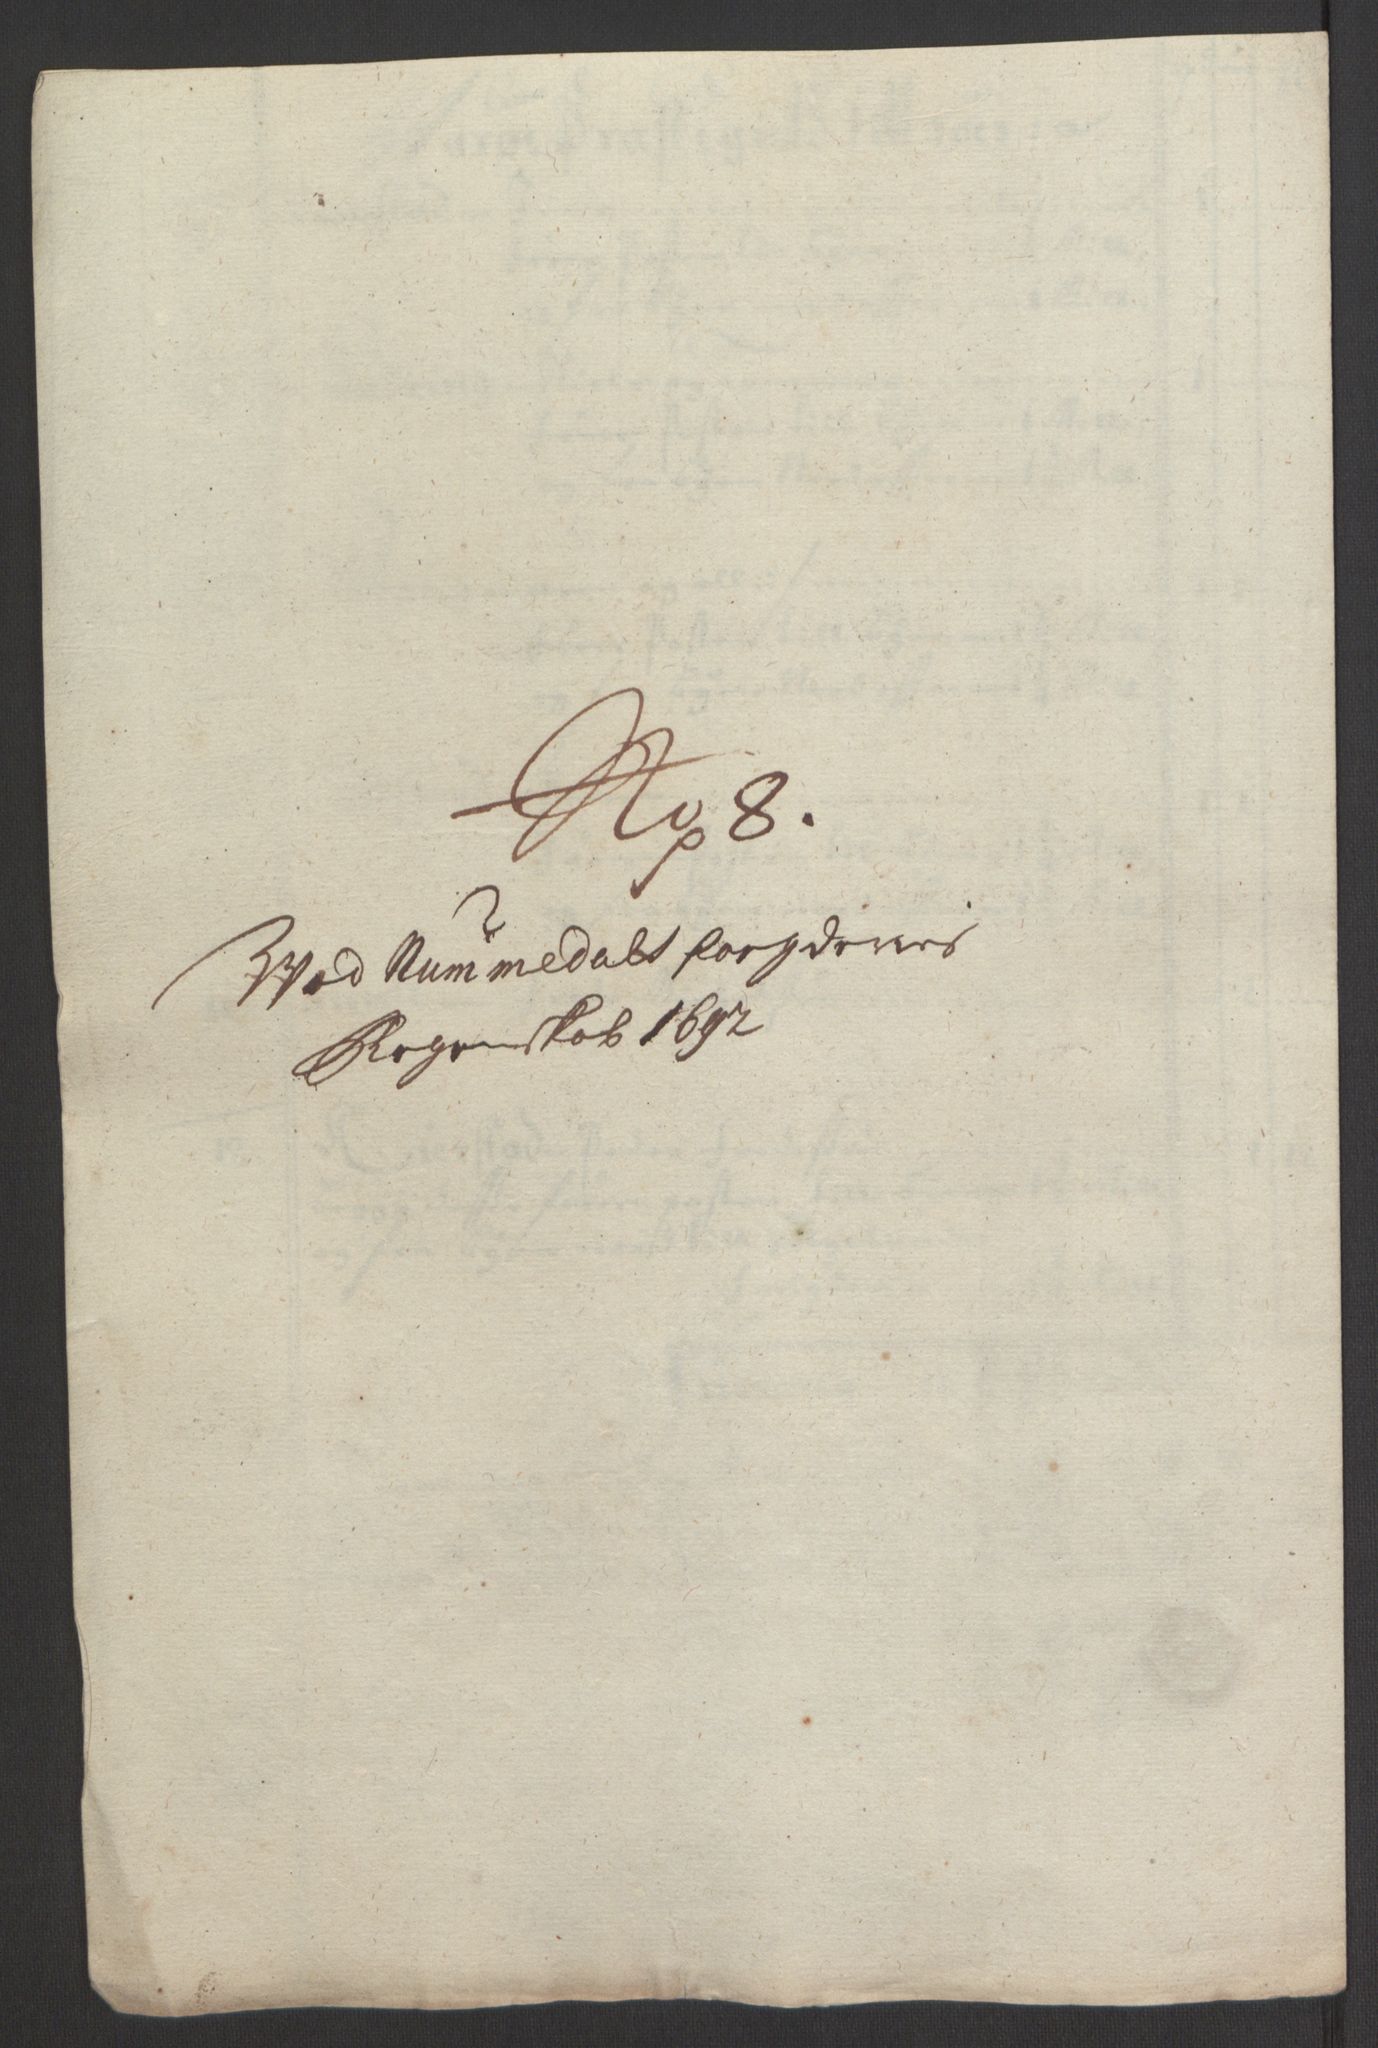 No 8.
Wed Nummedals foegderies
Regenskab 1692